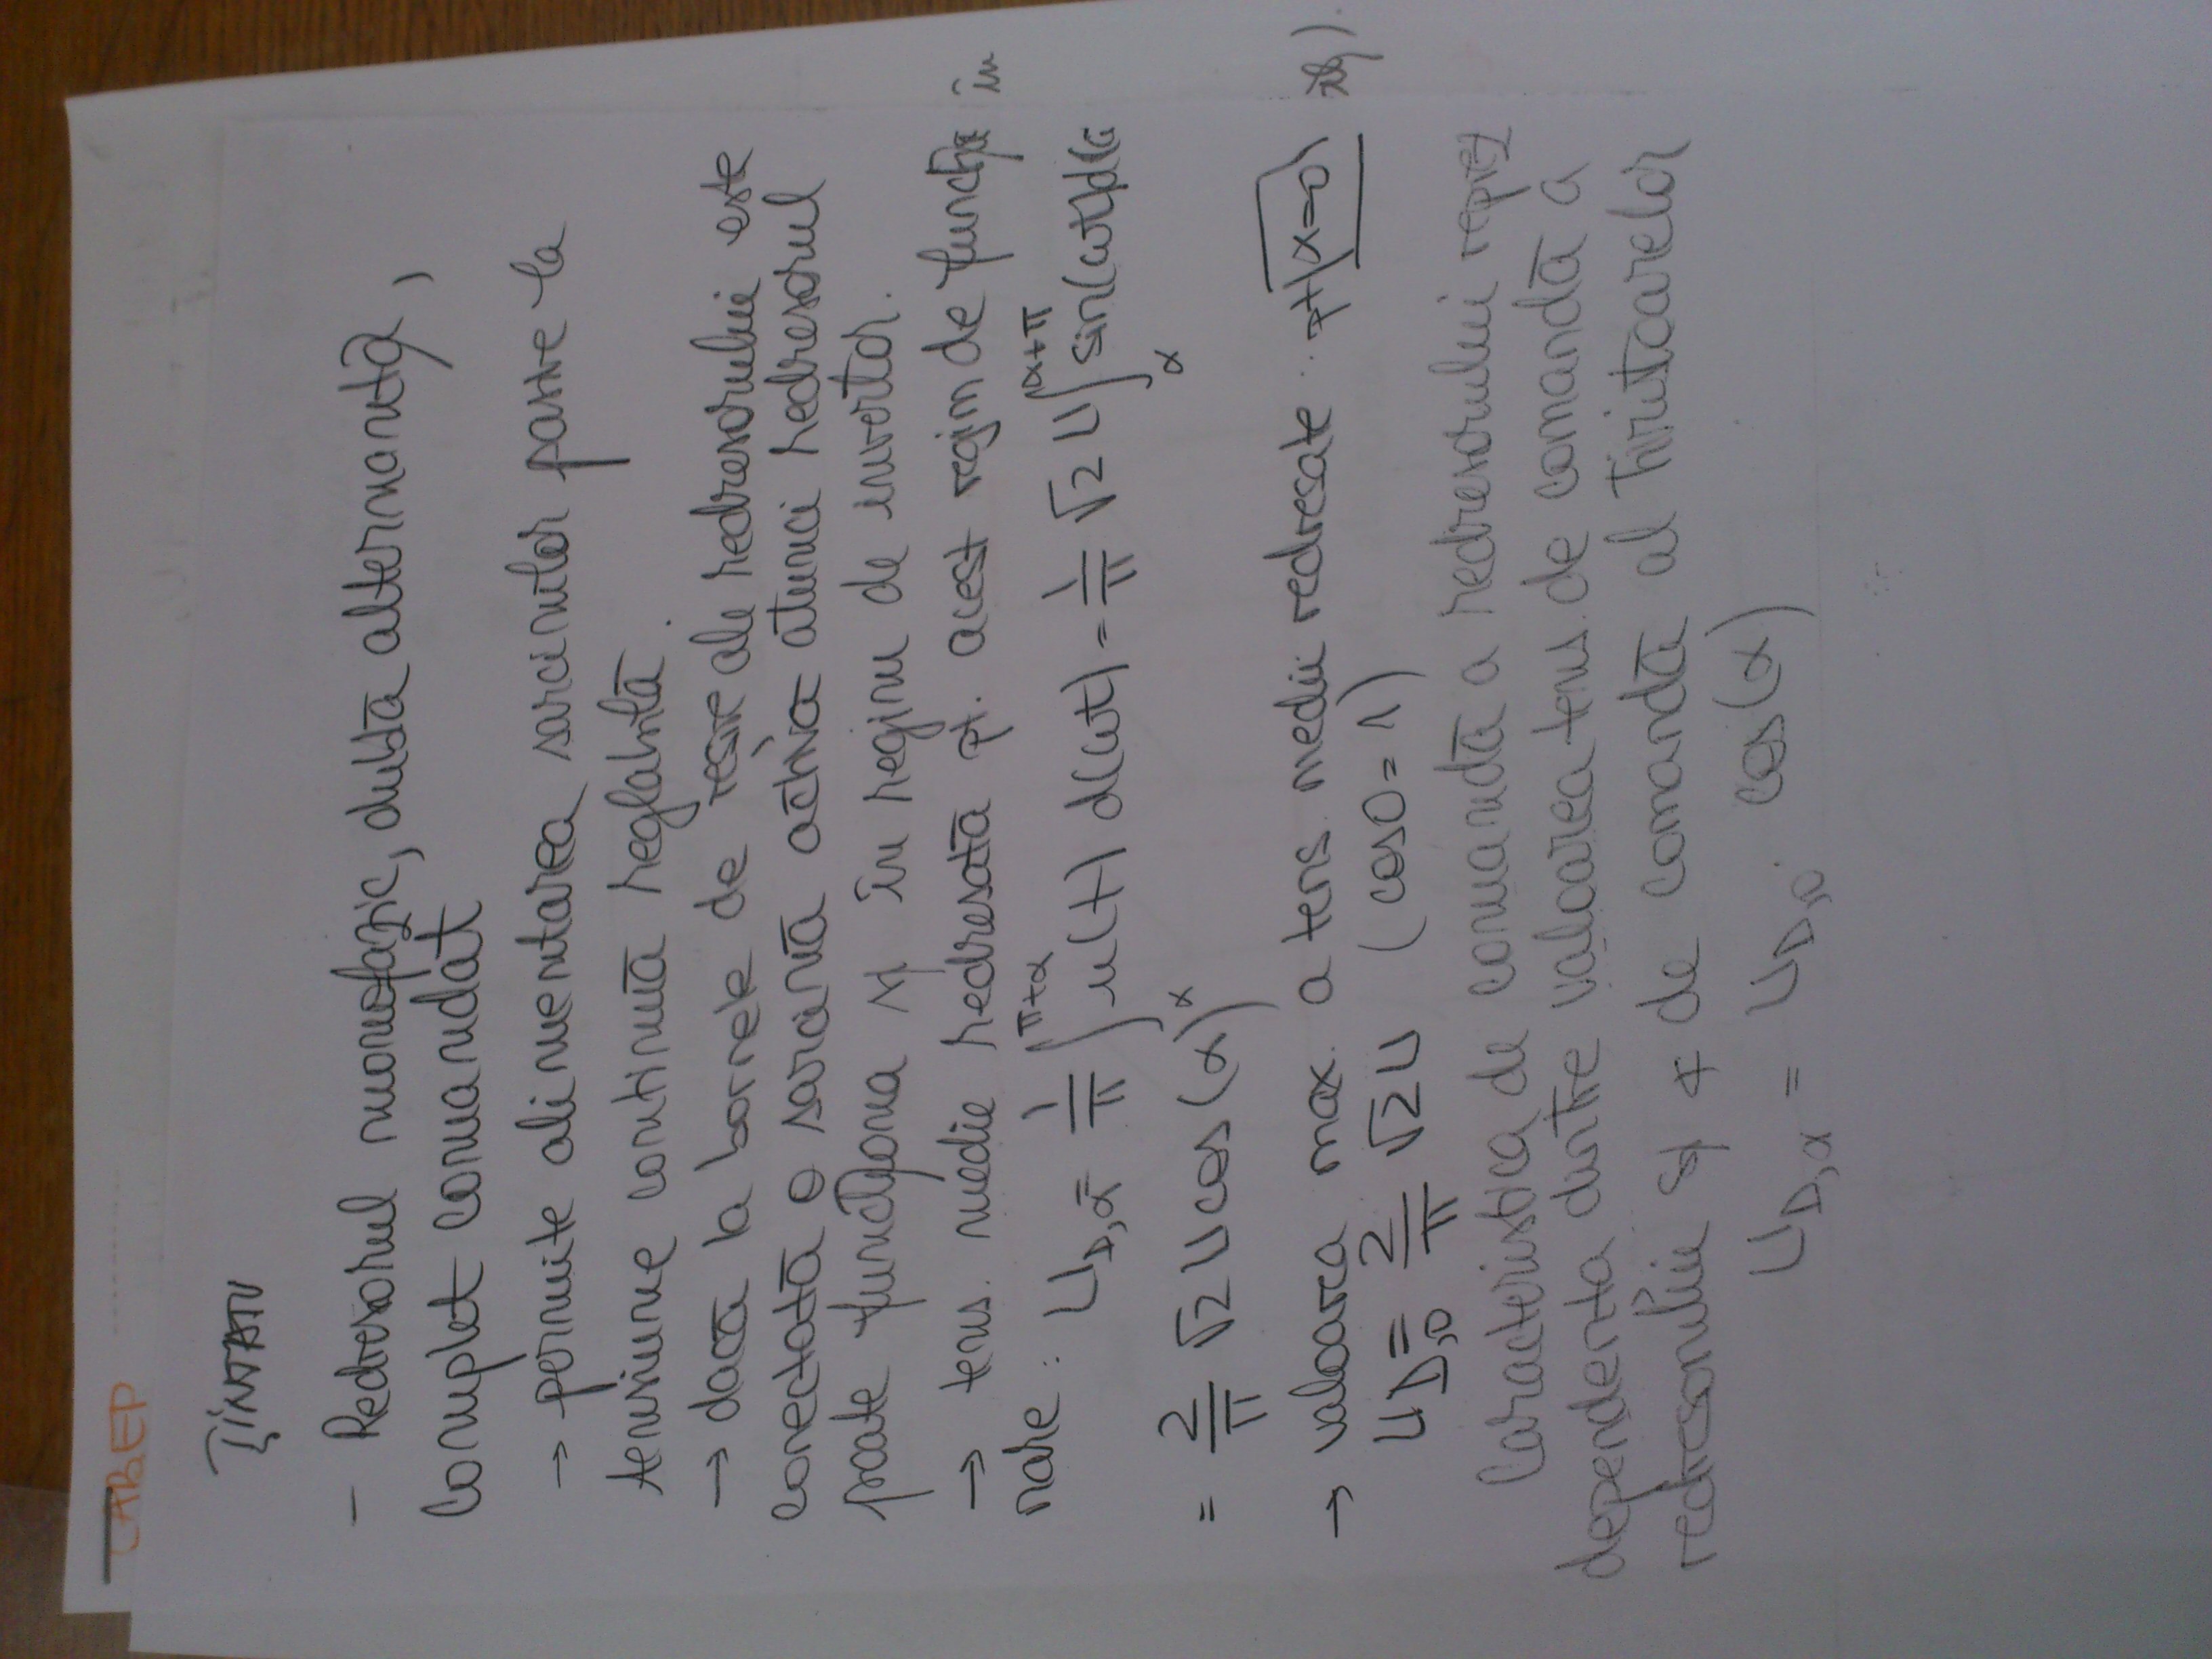 LABEP
ȚINTATU
- Redresorul monofazic, dublă alternanță,
complet comandat
→ permite alimentarea sarcinilor parte la
tensiune continuă reglabilă.
→ dacă la bornele de ieșire ale redresorului este
conectată o sarcină activă atunci redresorul
poate funcționa și în regim de invertor.
→ tens. medie redresată pt. acest regim de funcțio
nare: U_{D,α} = 1/π ∫_α^{π+α} u(t) d(ωt) = 1/π √2 U ∫_α^{α+π} sin(ωt)d(ω
= 2/π √2 U cos(α)
→ valoarea max. a tens. medii redresate pt α=0
U_{D,0} = 2/π √2 U (cos0=1)
Caracteristica de comandă a redresorului reprez
dependența dintre valoarea tens. de comandă a
redresorului și ∢ de comandă al Tiristoarelor
U_{D,α} = U_{D,0} · cos(α)